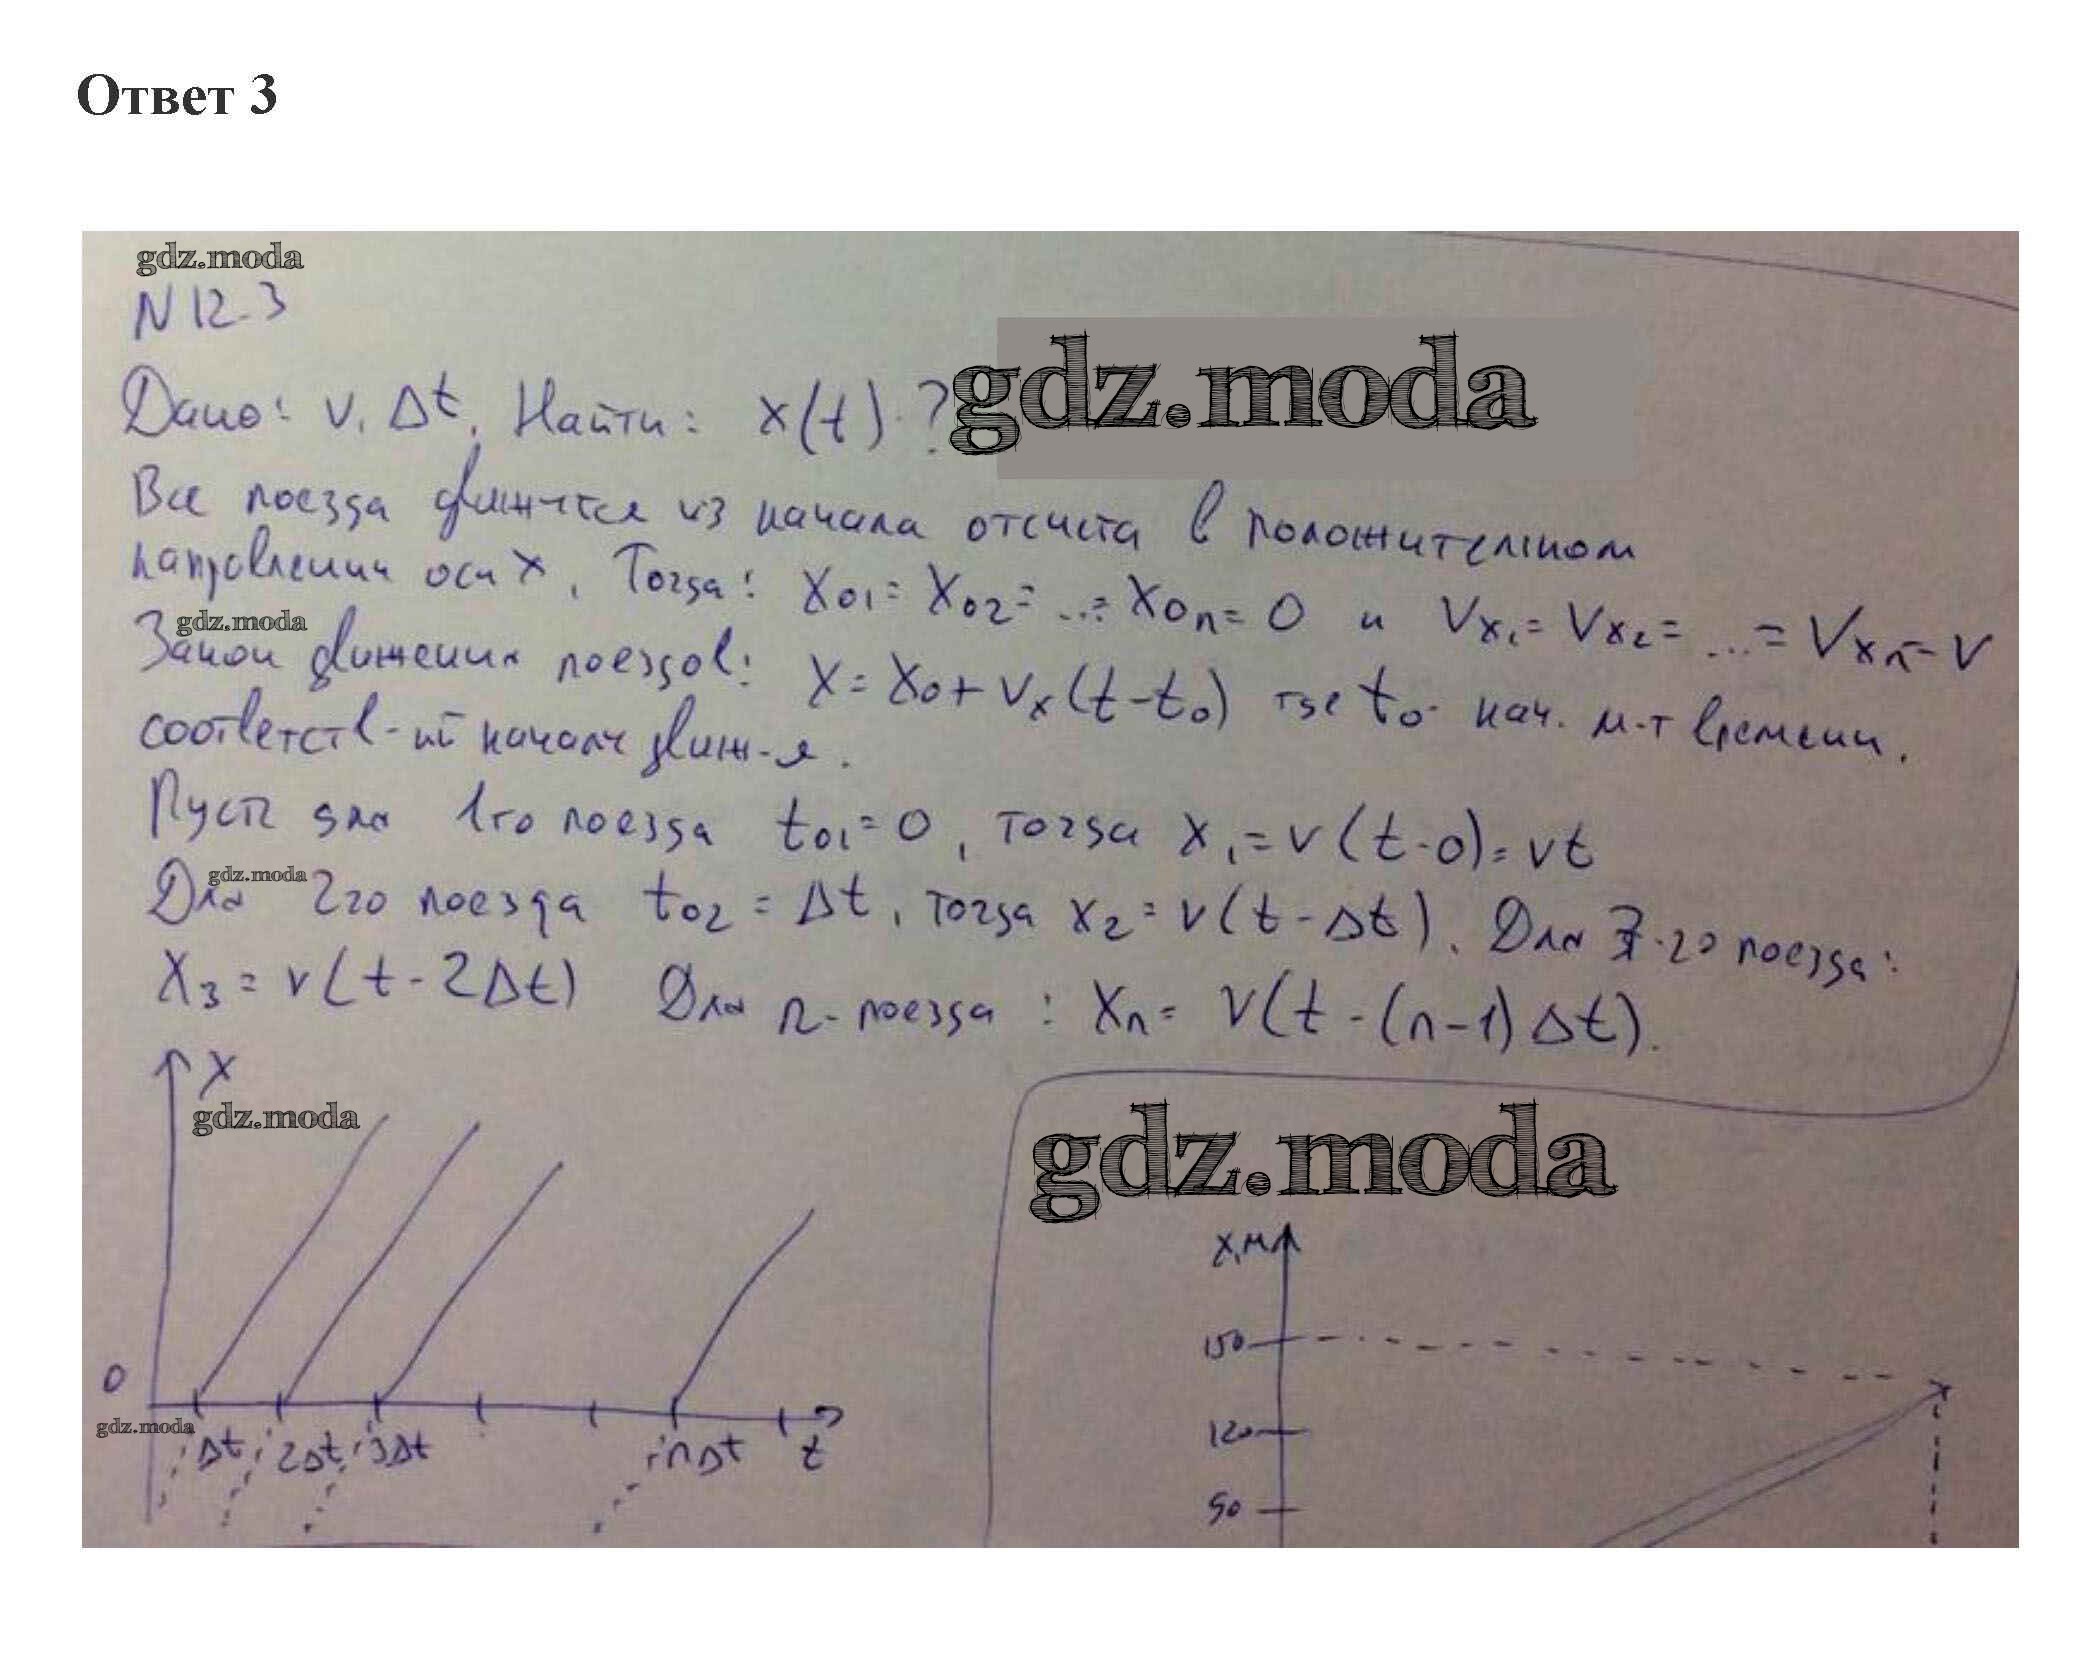 Ответ 3
gdz.moda
N 12.3
gdz.moda
Дано: v, Δt. Найти: x(t)-?
Все поезда движутся из начала отсчета в положительном
направлении оси x. Тогда: x01 = x02 = ... = x0n = 0 и Vx1 = Vx2 = ... = Vxn = V
gdz.moda
Закон движения поездов: x = x0 + vx(t-t0) где t0 - нач. м-т времени,
соответств-ий началу движ-я.
Пусть для 1го поезда t01 = 0, тогда x1 = v(t-0) = vt
gdz.moda
Для 2го поезда t02 = Δt, тогда x2 = v(t-Δt). Для 3-го поезда:
x3 = v(t-2Δt) Для n-поезда: xn = v(t-(n-1)Δt).
x
gdz.moda
gdz.moda
x,м
150
0
gdz.moda
Δt 2Δt 3Δt nΔt t
120
90